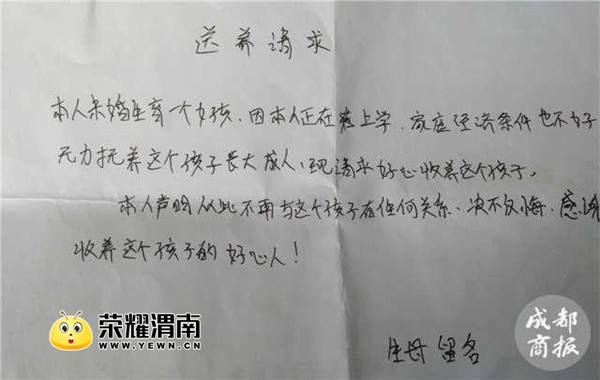 送养请求
本人未婚生育一个女孩、因本人正在上学、家庭经济条件也不好
无力抚养这个孩子长大成人、现请求好心收养这个孩子。
本人声明从此不再与这个孩子有任何关系、决不反悔、感谢
收养这个孩子的好心人！
生母 留名
荣耀渭南
WWW.YEWN.CN
成都
商报